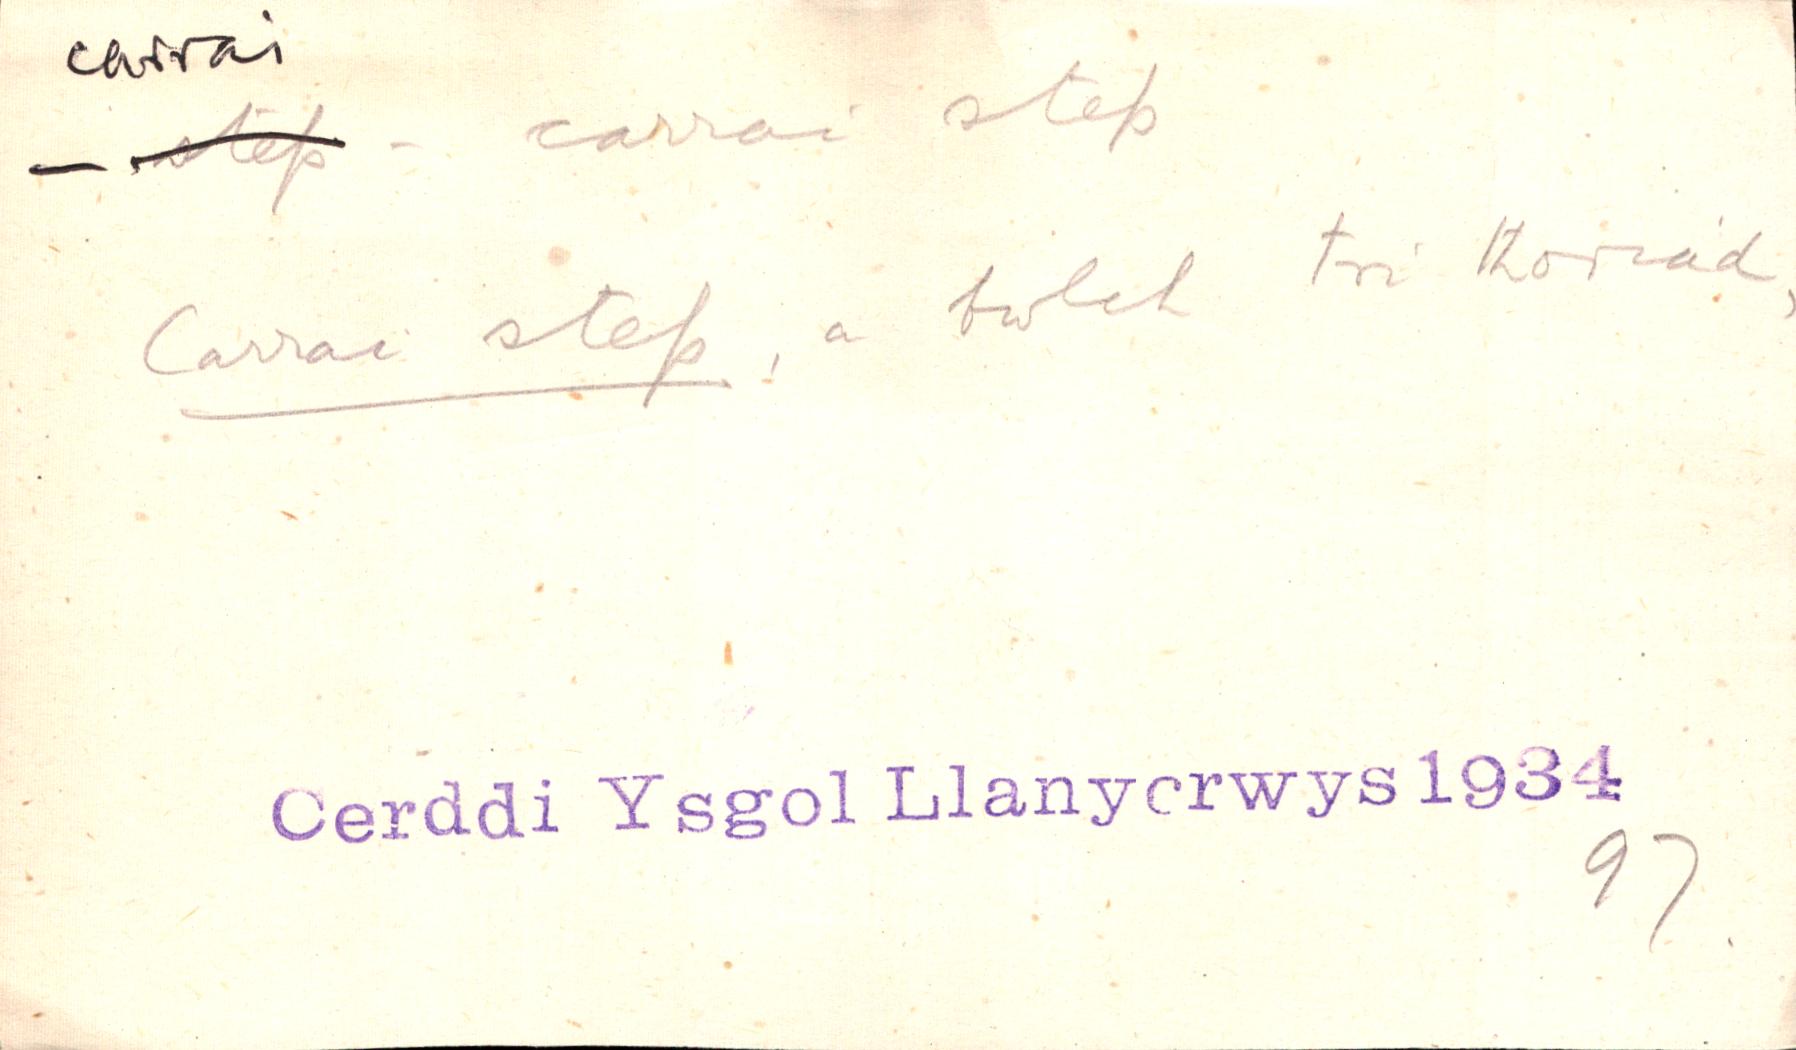 carrai
– step – carrai step
Carrai step, a bwlch tri thoriad,
Cerddi Ysgol Llanycrwys 1934
97.